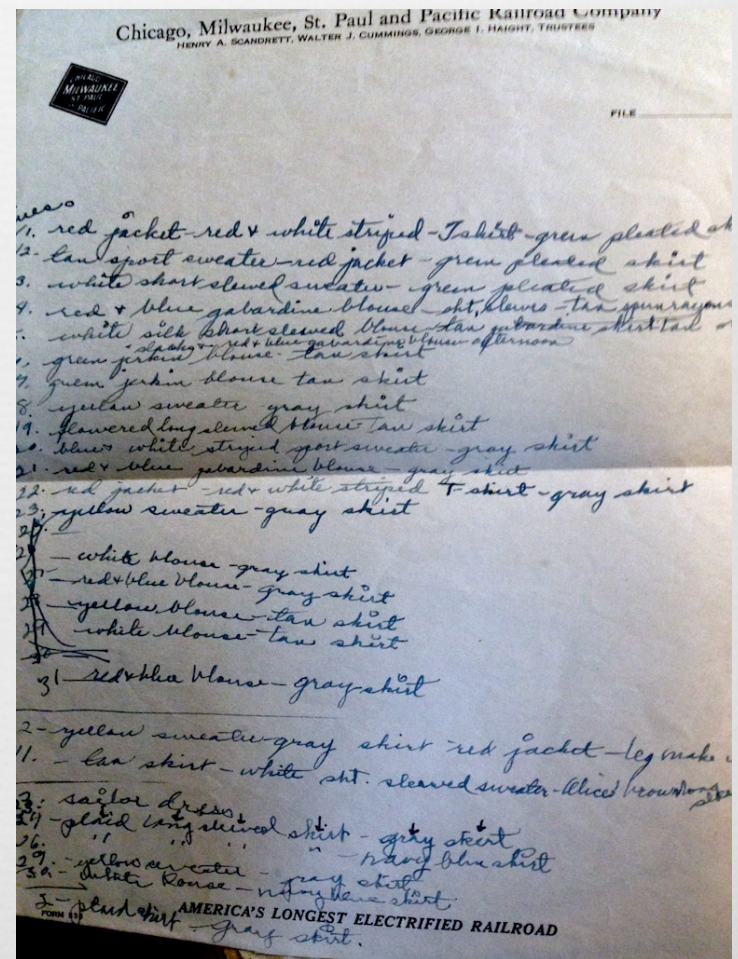 Chicago, Milwaukee, St. Paul and Pacific Railroad Company
HENRY A. SCANDRETT, WALTER J. CUMMINGS, GEORGE I. HAIGHT, TRUSTEES
CHICAGO
MILWAUKEE
ST. PAUL
PACIFIC
FILE
11. red jacket - red & white striped - T shirt - green pleated sk
12. tan sport sweater - red jacket - green pleated skirt
3. white short sleeved sweater - green pleated skirt
4. red & blue gabardine blouse - sht. sleeves - tan spun rayon
white silk short sleeved blouse tan gabardine skirt tan
slacks & red & blue gabardine blouse afternoon
green jerkin blouse - tan skirt
7. green jerkin blouse tan skirt
8. yellow sweater gray skirt
19. flowered long sleeved blouse tan skirt
20. blue & white striped sport sweater - gray skirt
21. red & blue gabardine blouse - gray skirt
22. red jacket - red & white striped T-shirt - gray skirt
23. yellow sweater - gray skirt
- white blouse - gray skirt
- red & blue blouse - gray skirt
- yellow blouse - tan skirt
white blouse - tan skirt
31 - red & blue blouse - gray skirt
2 - yellow sweater - gray skirt - red jacket - leg make
11. - tan skirt - white sht. sleeved sweater - Alice's brown
sailor dress
- plaid long sleeved shirt - gray skirt
26. " " " " - navy blue skirt
29. - yellow sweater - gray skirt
30. - white blouse - navy blue skirt.
FORM AMERICA'S LONGEST ELECTRIFIED RAILROAD
- plaid shirt - gray skirt.